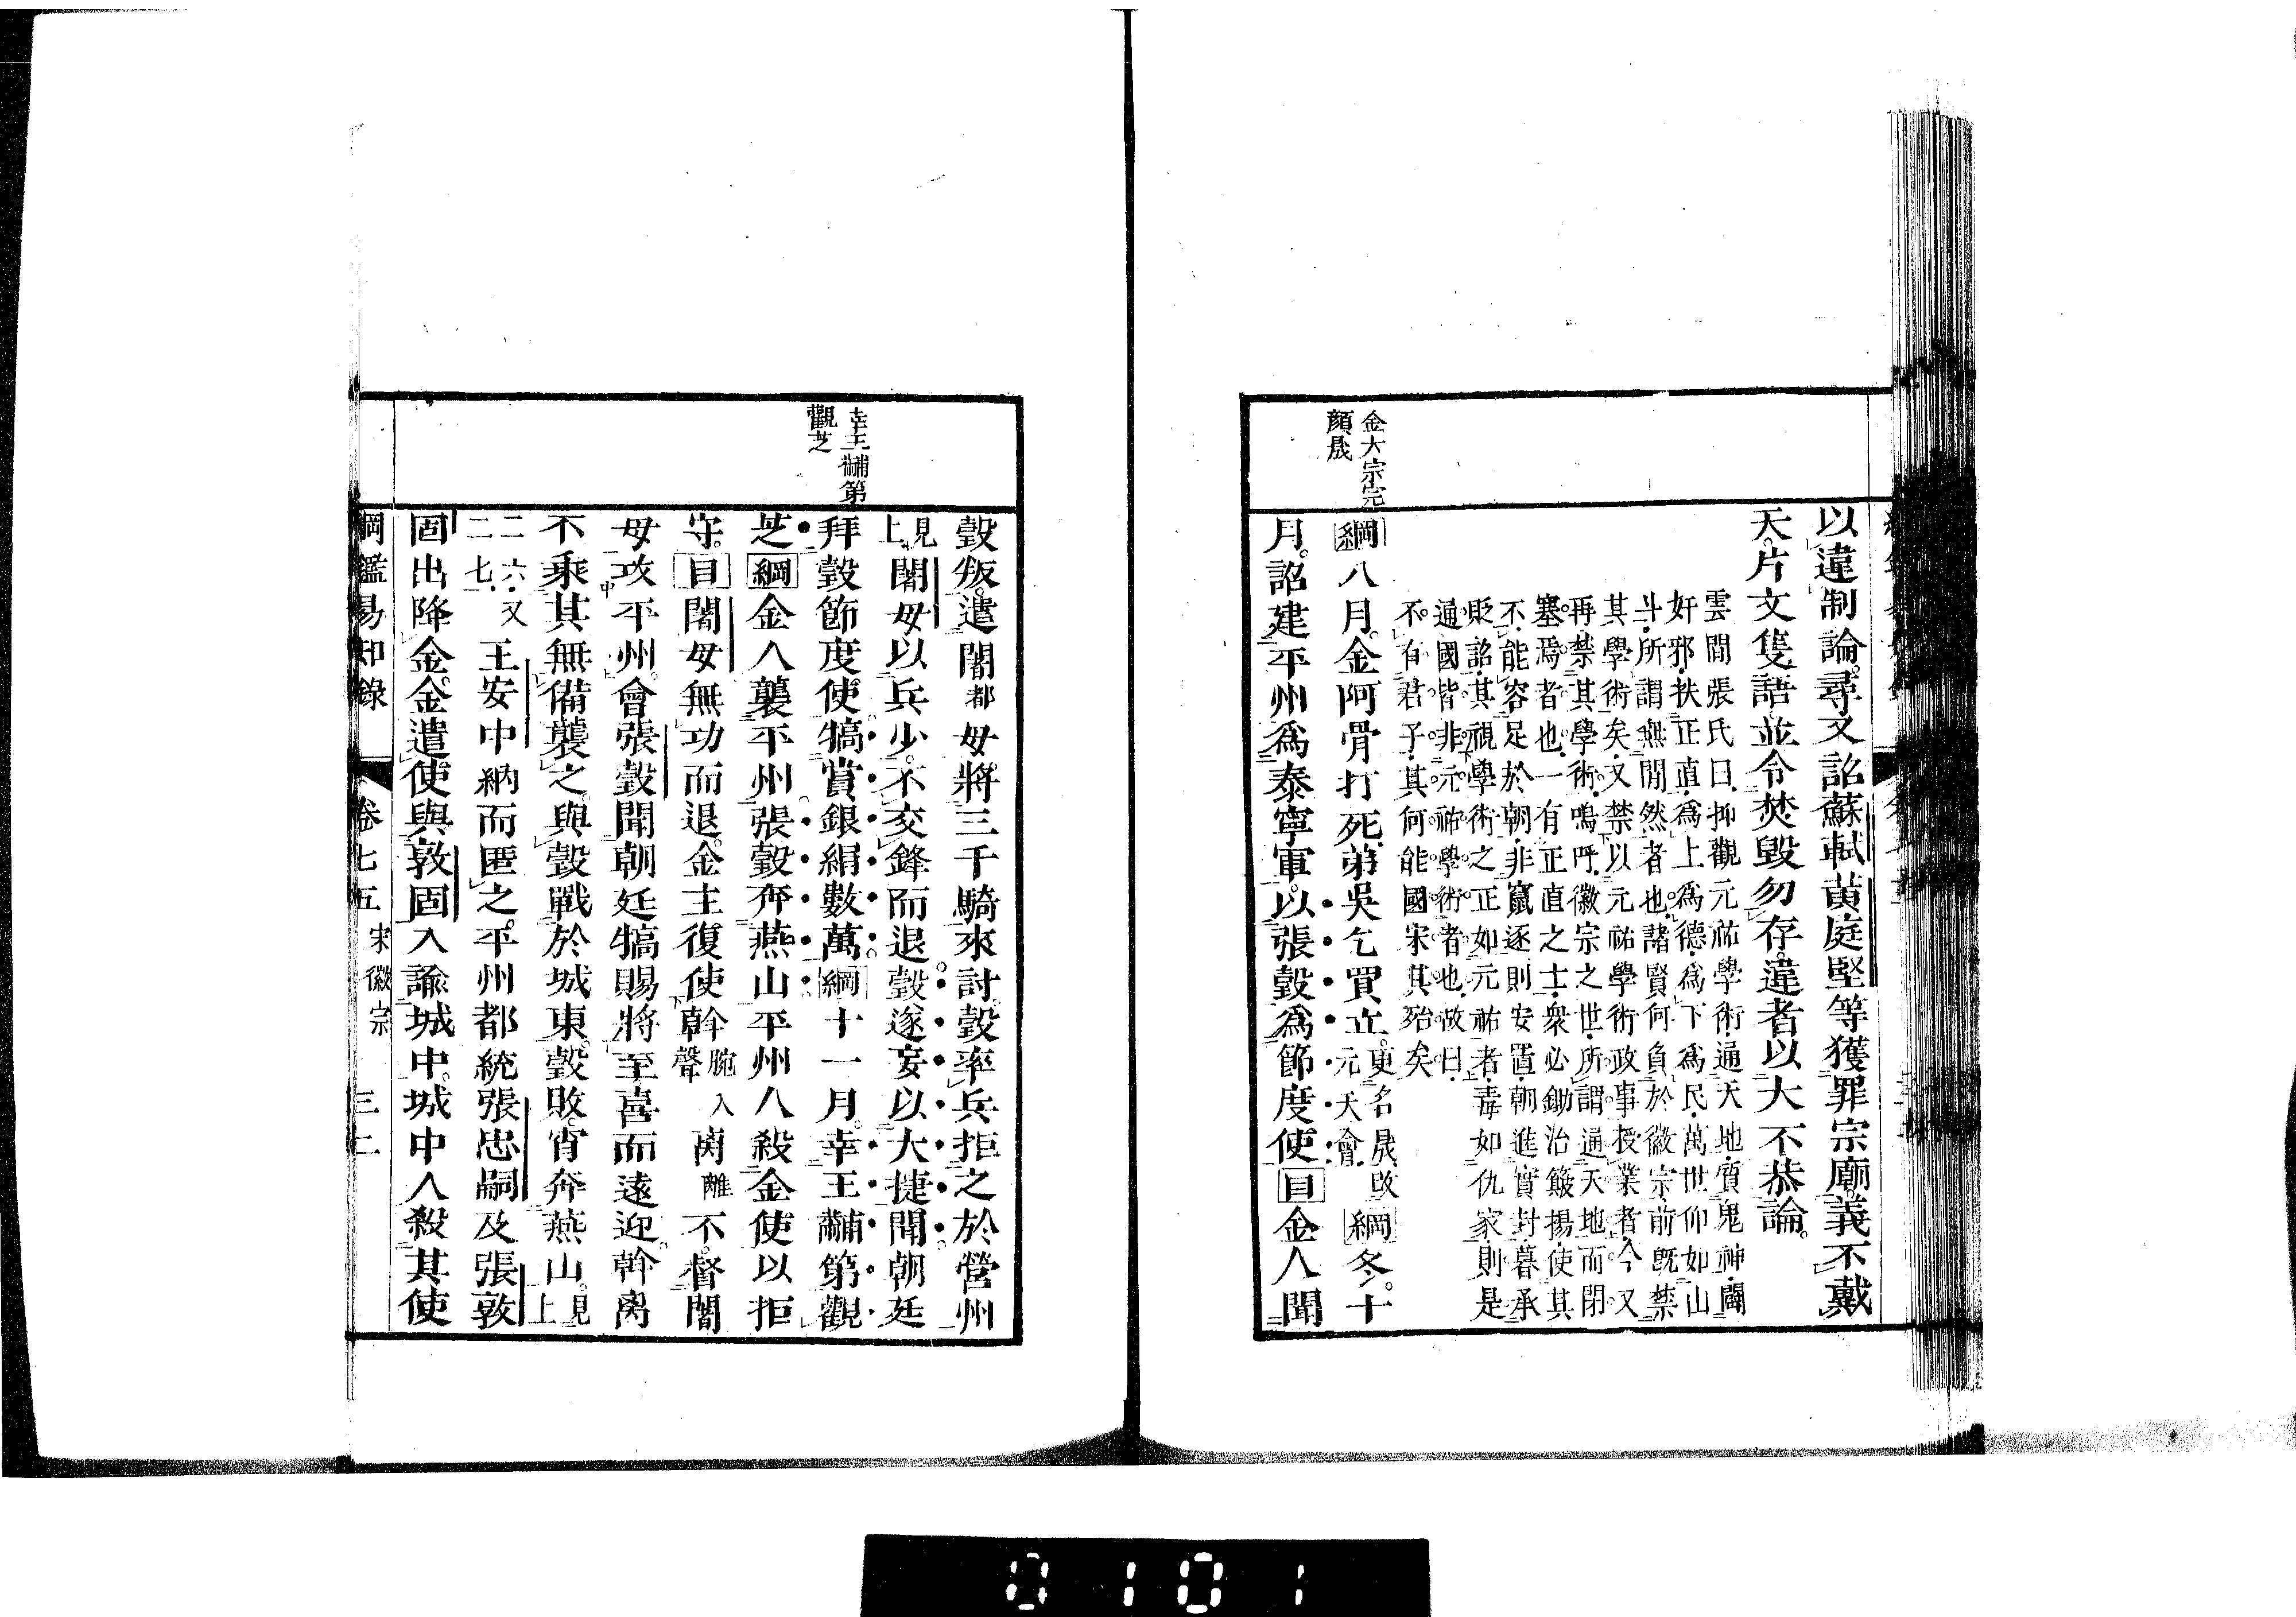 以違制論。尋又詔蘇軾黃庭堅等獲罪宗廟義不戴
天。片文隻語並令焚毀勿存。違者以大不恭論。
雲間張氏曰抑觀元祐學術通天地質鬼神闢
奸邪扶正直爲上爲德爲下爲民萬世仰如山
斗所謂無閒然者也諸賢何負於徽宗前旣禁
其學術矣又禁以元祐學術政事授業者今又
再禁其學術嗚呼徽宗之世所謂通天地而閉
塞焉者也一有正直之士衆必鋤治簸揚使其
不能容足於朝非竄逐則安置朝進實封暮承
貶詔其視學術之正如元祐者毒如仇家則是
通國皆非元祐學術者也故曰
不有君子其何能國宋其殆矣
金太宗完
顏晟
綱八月。金阿骨打死弟吳乞買立。更名晟改元天會綱冬。十
月。詔建平州爲泰寧軍。以張瑴爲節度使目金人聞
瑴叛。遣闍都母。將三千騎來討。瑴率兵拒之於營州
見上。闍母以兵少。不交鋒而退。瑴遂妄以大捷聞朝廷
幸王黼第
觀芝
拜瑴節度使。犒賞銀絹數萬。綱十一月。幸王黼第觀
芝綱金人襲平州張瑴奔燕山平州人殺金使以拒
守。目闍母無功而退。金主復使斡腕入聲离離不。督闍
母攻平州。會張瑴聞朝廷犒賜將至。喜而遠迎。斡离
不乘其無備襲之。與瑴戰於城東。瑴敗。宵奔燕山。見上
二六又二七王安中納而匿之。平州都統張忠嗣及張敦
固出降金。金遣使與敦固入諭城中。城中人殺其使
綱鑑易知錄 卷七五 宋徽宗 三二